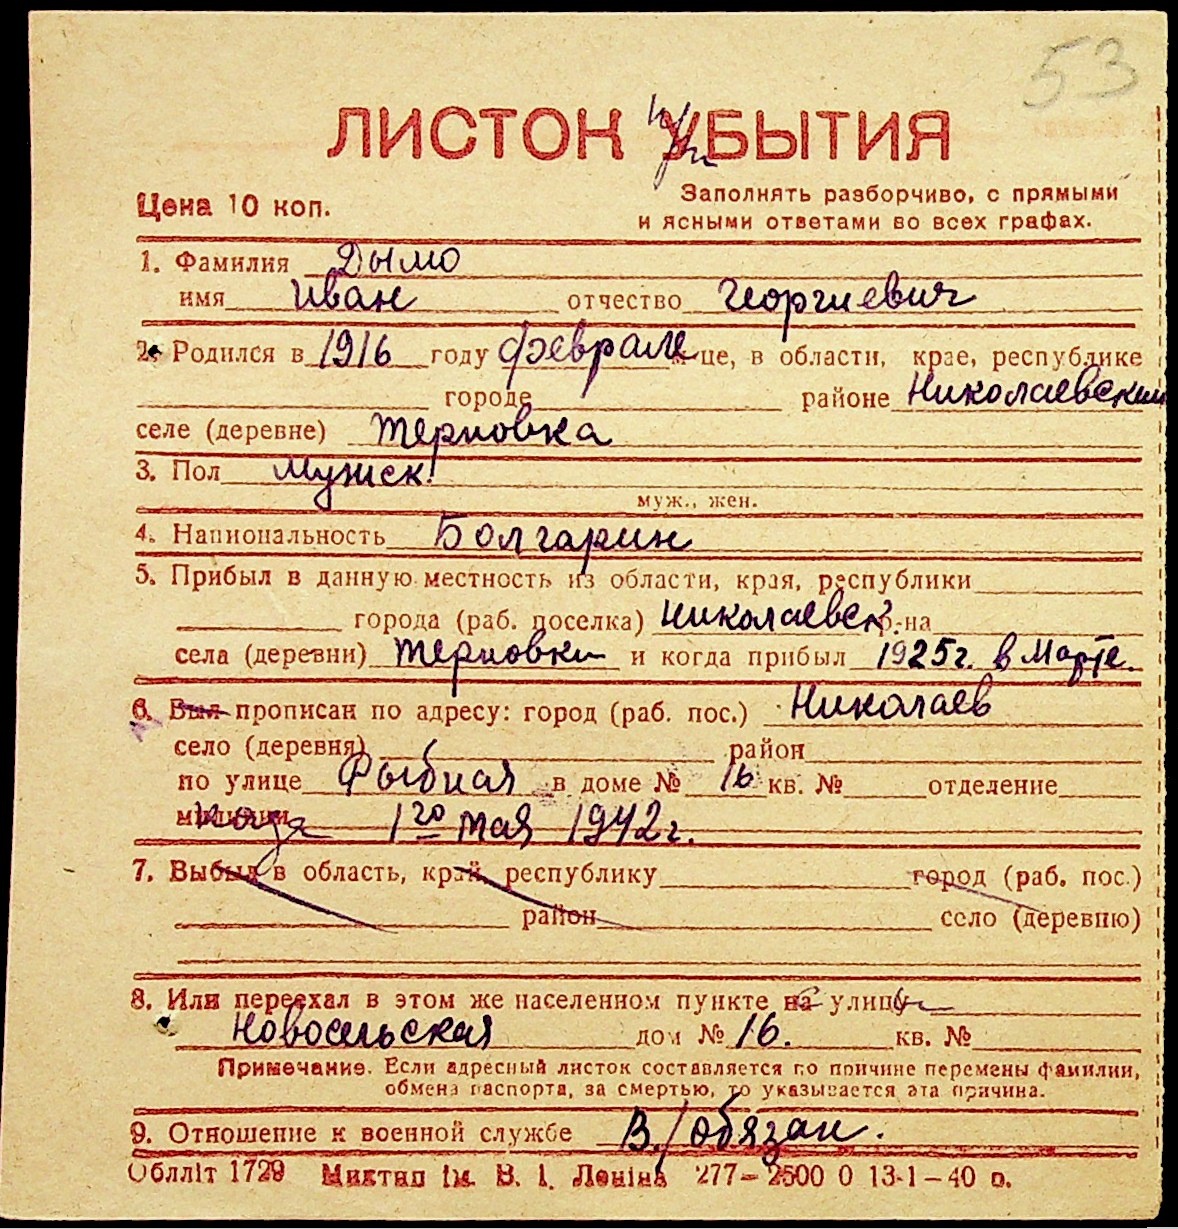 53
ЛИСТОК УБЫТИЯ
при
Цена 10 коп.
Заполнять разборчиво, с прямыми
и ясными ответами во всех графах.
1. Фамилия Дымо
имя Иван отчество Георгиевич
2. Родился в 1916 году феврале м-це, в области, крае, республике
городе районе Николаевский
селе (деревне) Терновка
3. Пол Мужск.
муж., жен.
4. Национальность Болгарин
5. Прибыл в данную местность из области, края, республики
города (раб. поселка) Николаевск. р-на
села (деревни) Терновки и когда прибыл 1925г. в Марте.
6. Был прописан по адресу: город (раб. пос.) Николаев
село (деревня) район
по улице Рыбная в доме № 16 кв. № отделение
милиции когда 1го мая 1942г.
7. Выбыл в область, край, республику город (раб. пос.)
район село (деревню)
8. Или переехал в этом же населенном пункте на улицу
с
Новосельская дом № 16. кв. №
Примечание. Если адресный листок составляется по причине перемены фамилии,
обмена паспорта, за смертью, то указывается эта причина.
9. Отношение к военной службе В./обязан.
Обллiт 1729 Миктип iм. В. I. Ленiна 277—2500 0 13-1—40 р.